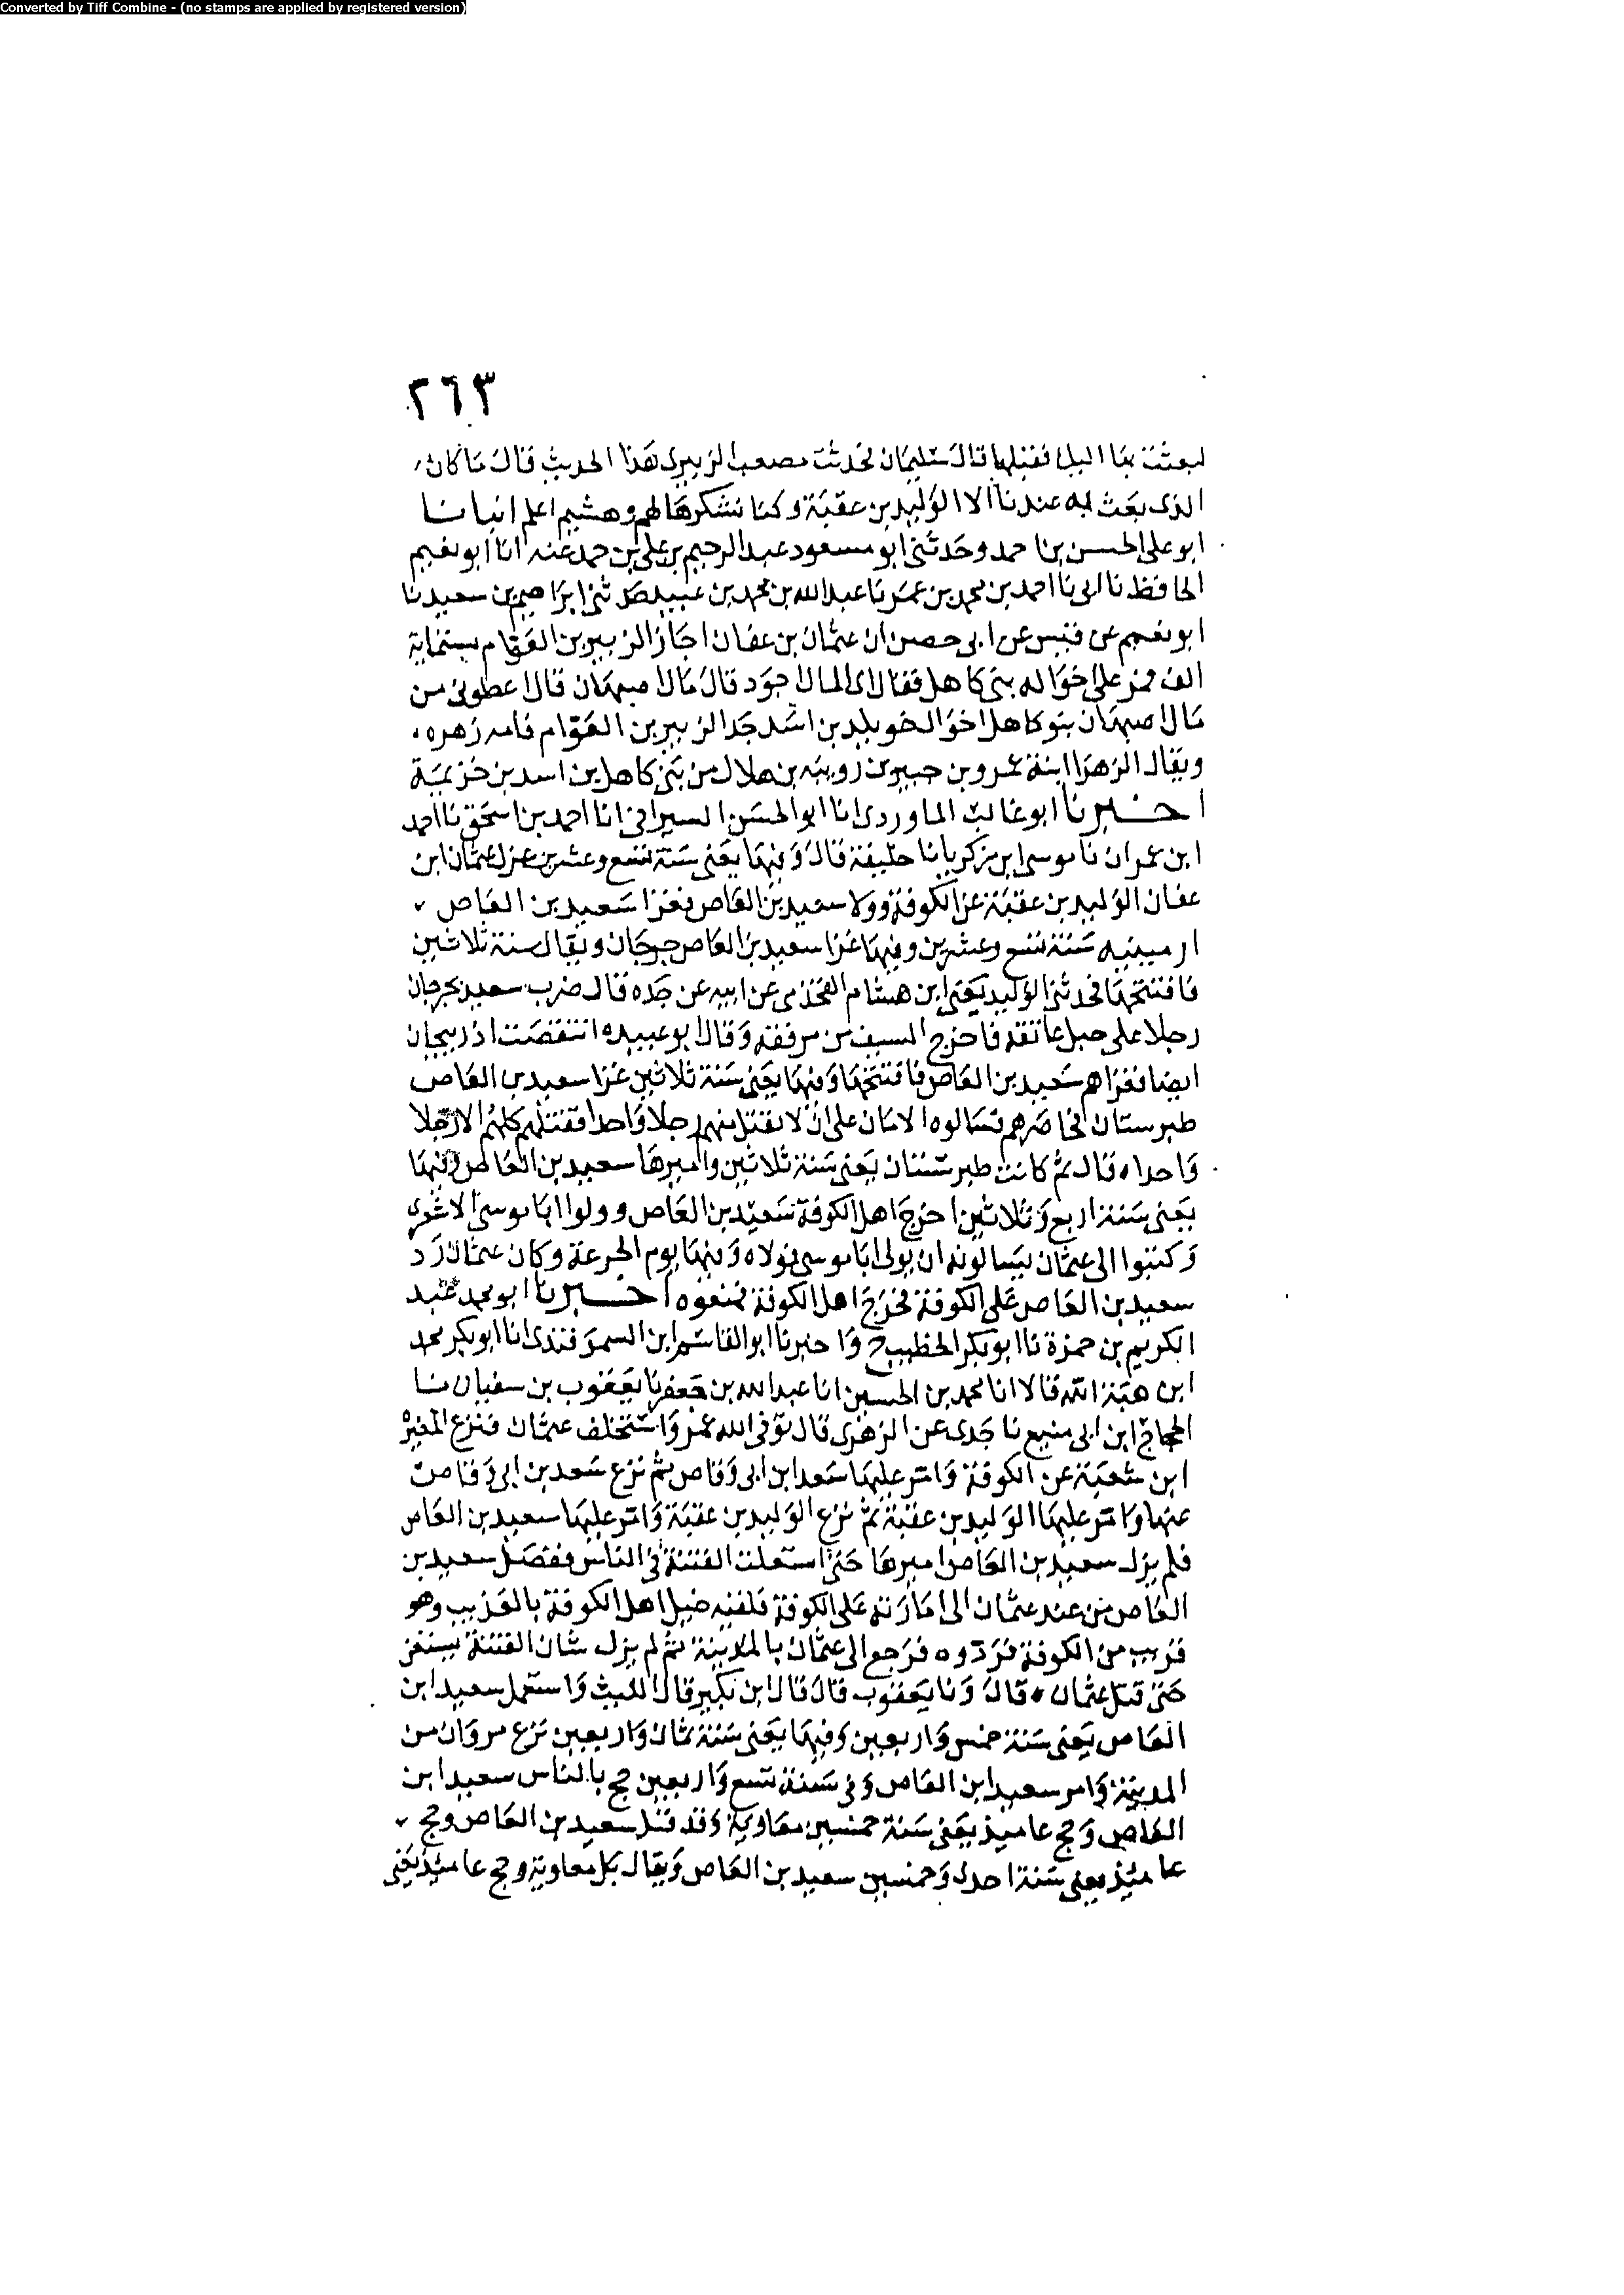 Converted by Tiff Combine - (no stamps are applied by registered version)
٢٦٣
لبعثت بها اليك فقبلها قال سليمان فحدثت مصعب الزبيرى هذا الحديث قال ما كان
الذى بعث به عندنا الا الوليد بن عقبة وكنا نشكرها لهم وهشيم اعلم انبانا
ابو على الحسن بن احمد وحدثنى ابو مسعود عبد الرحيم بن على بن حمد عنه انا ابو نعيم
الحافظ نا ابى نا احمد بن محمد بن عمر نا عبد الله بن محمد بن عبيد حدثنى ابراهيم بن سعيد نا
ابو نعيم عن قيس عن ابى حصين ان عثمان بن عفان اجاز الزبير بن العوام بستماية
الف فمر على اخواله بنى كاهل فقال اى المال اجود قال مال اصبهان قال اعطونى من
مال اصبهان بنو كاهل اخوال خويلد بن اسد جد الزبير بن العوام فامه زهره
ويقال الزهرا ابنة عمرو بن حبير بن رويبه بن هلال من بنى كاهل بن اسد بن خزيمة
اخبرنا ابو غالب الماوردى انا ابو الحسن السيرافى انا احمد بن اسحق نا احمد
ابن عمران نا موسى ابن زكريا نا خليفة قال وفيها يعنى سنة تسع وعشرين عزل عثمان ابن
عفان الوليد بن عقبة عن الكوفة وولا سعيد بن العاص فغزا سعيد بن العاص
ارمينيه سنة تسع وعشرين وفيها غزا سعيد بن العاص جرجان ويقال سنة ثلاثين
فافتتحها فحدثنى الوليد يعنى ابن هشام القحذمى عن ابيه عن جده قال ضرب سعيد بجرجان
رجلا على حبل عاتقه فاخرج السيف من مرفقه وقال ابو عبيده انتقضت اذربيجان
ايضا فغزاهم سعيد بن العاص فافتتحها وفيها يعنى سنة ثلاثين غزا سعيد بن العاص
طبرستان فحاصرهم فسالوه الامان على ان لا يقتل منهم رجلا واحدا فقتلهم كلهم الا رجلا
واحدا قال ثم كانت طبرستان يعنى سنة ثلاثين واميرها سعيد بن العاص وفيها
يعنى سنة اربع وثلاثين اخرج اهل الكوفة سعيد بن العاص وولوا ابا موسى الاشعرى
وكتبوا الى عثمان يسالونه ان يولى ابا موسى فولاه وفيها يوم الجرعة وكان عثمان رد
سعيد بن العاص على الكوفة فخرج اهل الكوفة فمنعوه اخبرنا ابو محمد عبد
الكريم بن حمزة نا ابو بكر الخطيب ح واخبرنا ابو القاسم ابن السمرقندى انا ابو بكر محمد
ابن هبة الله قالا انا محمد بن الحسين انا عبد الله بن جعفر نا يعقوب بن سفيان نا
الحجاج ابن ابى منيع نا جدى عن الزهرى قال توفى الله عمر واستخلف عثمان فنزع المغيرة
ابن شعبة عن الكوفة وامر عليها سعد ابن ابى وقاص ثم نزع سعد بن ابى وقاص
عنها وامر عليها الوليد بن عقبة ثم نزع الوليد بن عقبة وامر عليها سعيد بن العاص
فلم يزل سعيد بن العاص اميرها حتى استعلت الفتنة فى الناس ففصل سعيد بن
العاص من عند عثمان الى امارته على الكوفة فلقيه خيل اهل الكوفة بالعذيب وهو
قريب من الكوفة فردوه فرجع الى عثمان بالمدينة ثم لم يزل شان الفتنة يستعر
حتى قتل عثمان قال ونا يعقوب قال قال ابن بكير قال الليث واستعمل سعيد ابن
العاص يعنى سنة خمس واربعين وفيها يعنى سنة ثمان واربعين نزع مروان من
المدينة وامر سعيد ابن العاص وفى سنة تسع واربعين حج بالناس سعيد ابن
العاص وحج عاميذ يعنى سنة خمسين معاوية وقد قتل سعيد بن العاص وحج
عامئذ يعنى سنة احدى وخمسين سعيد بن العاص ويقال بل معاوية وحج عامئذ يعنى